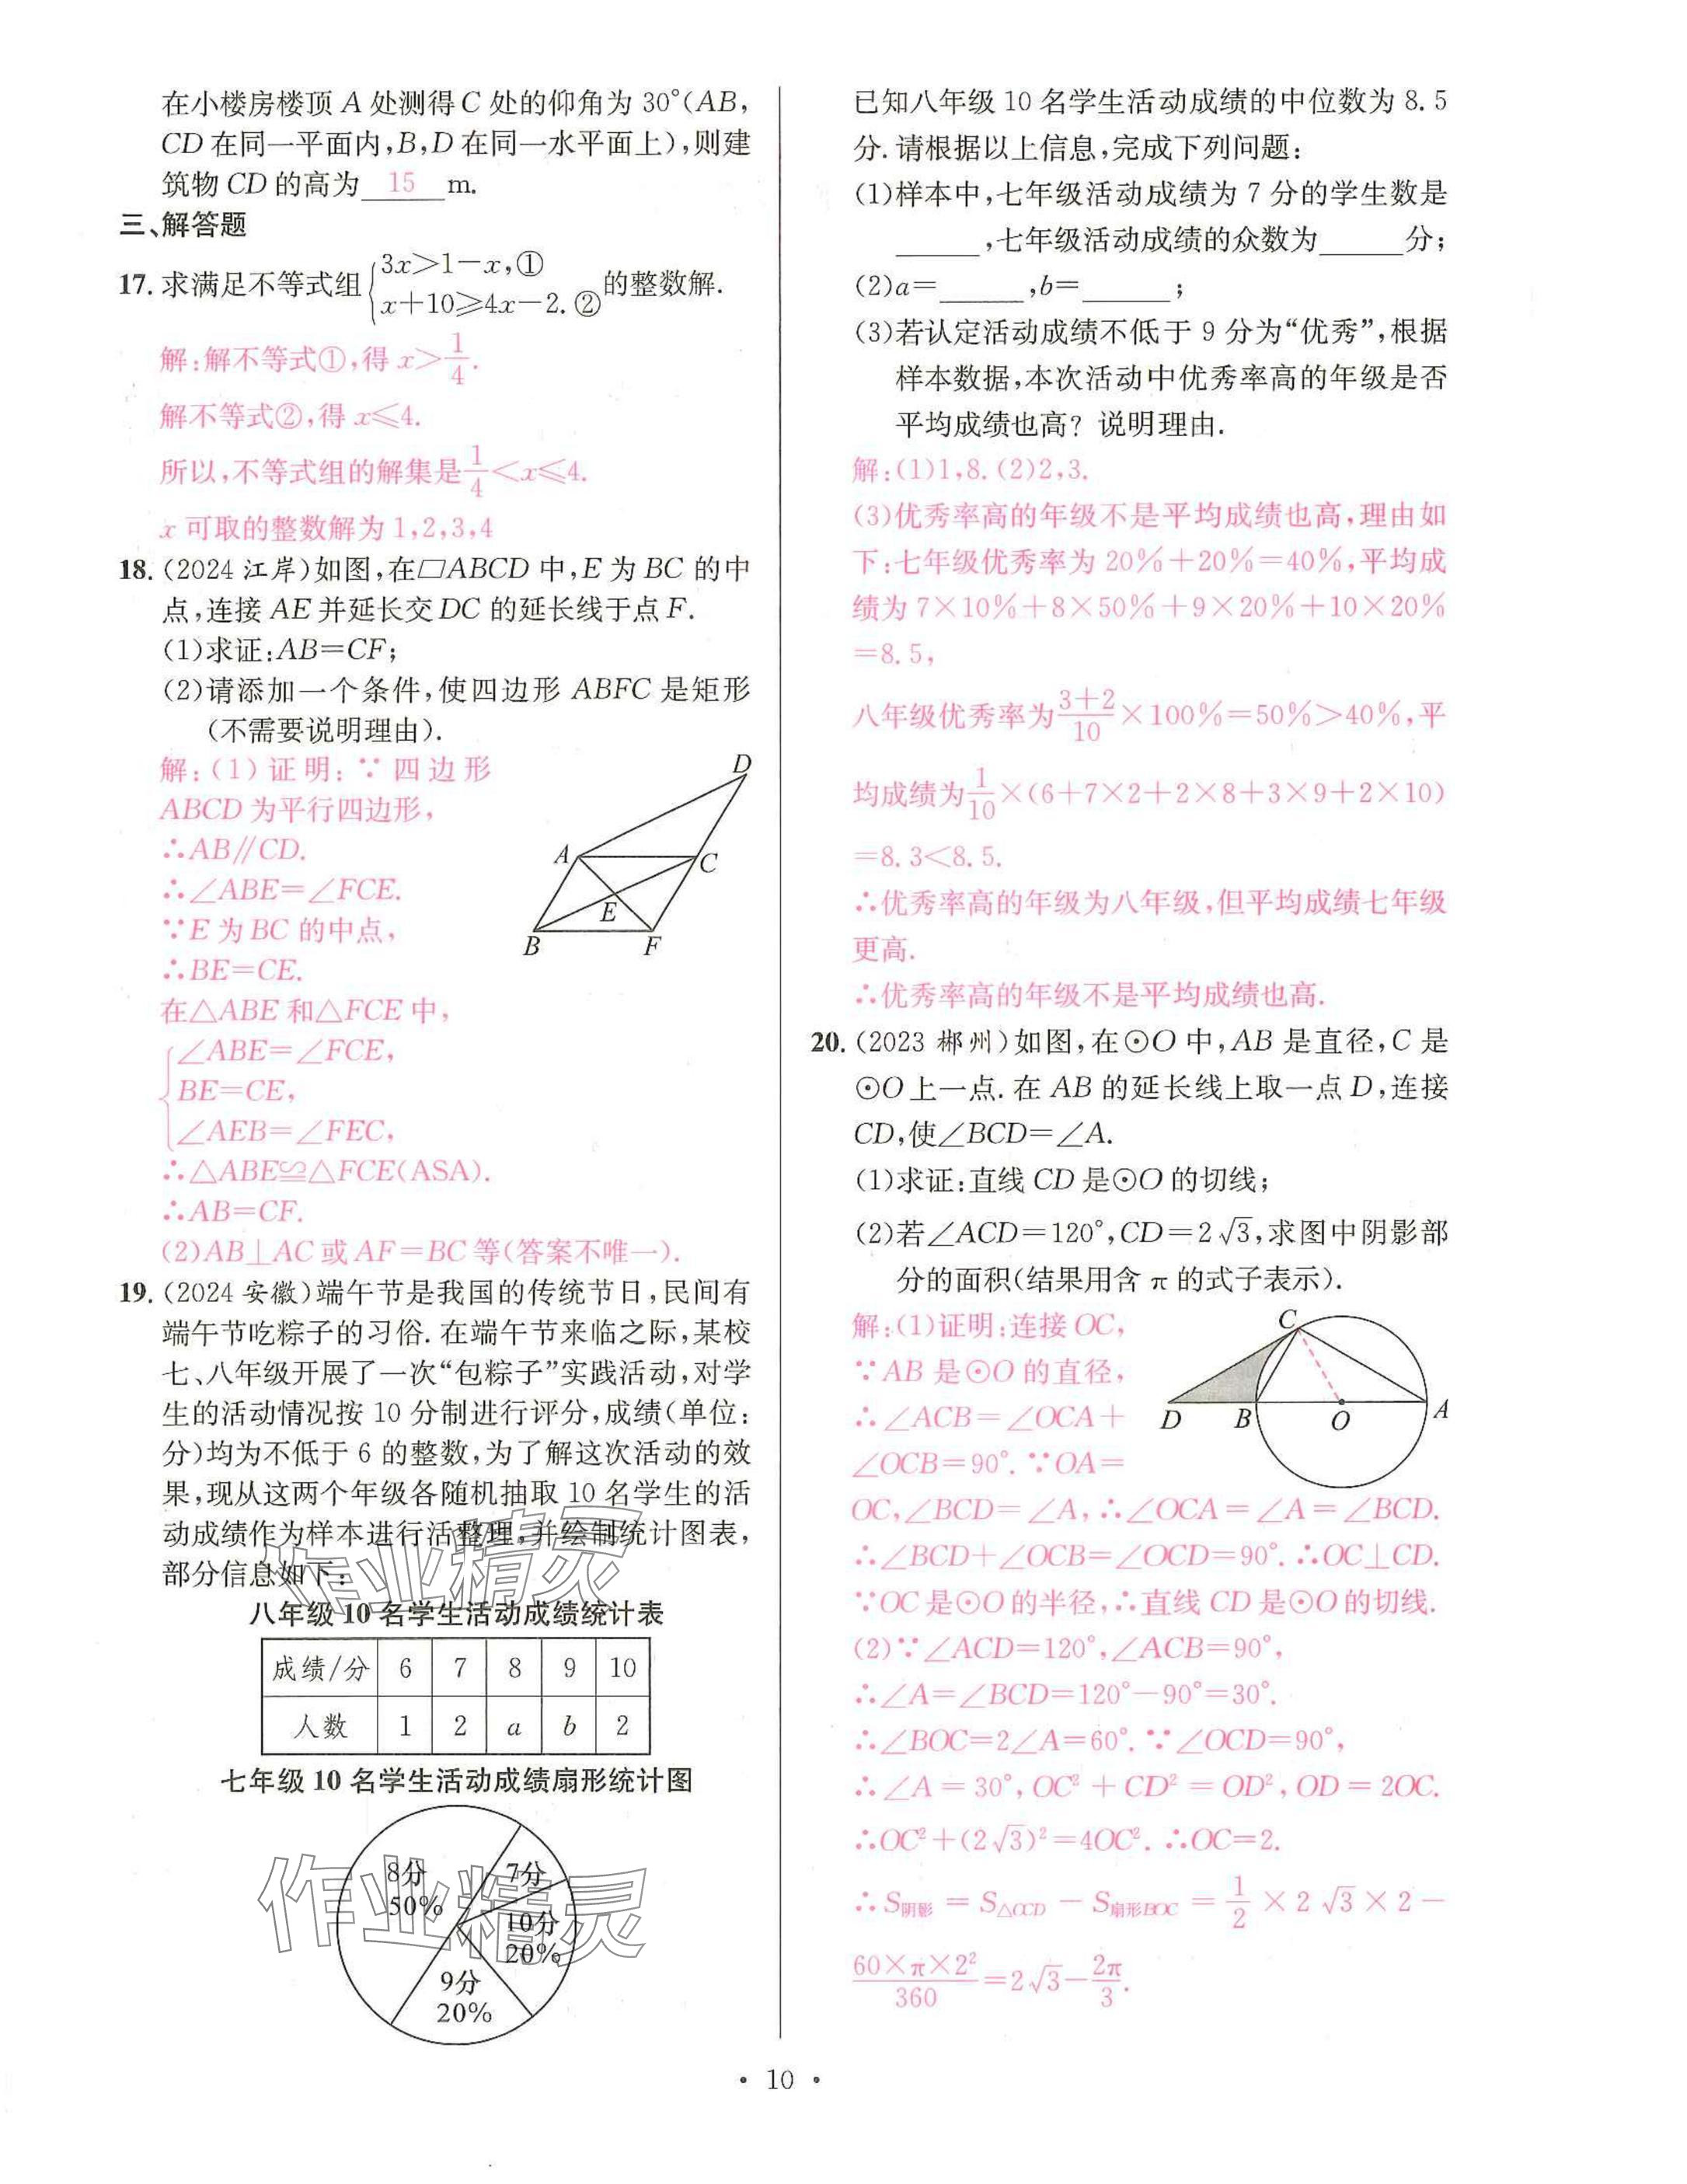 在小楼房楼顶 A 处测得 C 处的仰角为 30°(AB,
CD 在同一平面内,B,D 在同一水平面上),则建
筑物 CD 的高为 15 m.
三、解答题
17. 求满足不等式组{3x>1-x,① x+10≥4x-2.② 的整数解.
解:解不等式①,得 x>1/4.
解不等式②,得 x≤4.
所以,不等式组的解集是1/4<x≤4.
x 可取的整数解为 1,2,3,4
18. (2024 江岸)如图,在▱ABCD 中,E 为 BC 的中
点,连接 AE 并延长交 DC 的延长线于点 F.
(1)求证:AB=CF;
(2)请添加一个条件,使四边形 ABFC 是矩形
(不需要说明理由).
解:(1)证明:∵四边形
ABCD 为平行四边形,
∴AB∥CD.
∴∠ABE=∠FCE.
∵E 为 BC 的中点,
∴BE=CE.
在△ABE 和△FCE 中,
∠ABE=∠FCE,
BE=CE,
∠AEB=∠FEC,
∴△ABE≌△FCE(ASA).
∴AB=CF.
(2)AB⊥AC 或 AF=BC 等(答案不唯一).
D
A
C
E
B
F
19. (2024 安徽)端午节是我国的传统节日,民间有
端午节吃粽子的习俗.在端午节来临之际,某校
七、八年级开展了一次“包粽子”实践活动,对学
生的活动情况按 10 分制进行评分,成绩(单位:
分)均为不低于 6 的整数,为了解这次活动的效
果,现从这两个年级各随机抽取 10 名学生的活
动成绩作为样本进行活整理,并绘制统计图表,
部分信息如下:
作业精灵
八年级 10 名学生活动成绩统计表
成绩/分 6 7 8 9 10
人数 1 2 a b 2
七年级 10 名学生活动成绩扇形统计图
8分
50%
7分
10分
20%
9分
20%
作业精灵
已知八年级 10 名学生活动成绩的中位数为 8.5
分.请根据以上信息,完成下列问题:
(1)样本中,七年级活动成绩为 7 分的学生数是
______,七年级活动成绩的众数为______分;
(2)a=______,b=______;
(3)若认定活动成绩不低于 9 分为“优秀”,根据
样本数据,本次活动中优秀率高的年级是否
平均成绩也高? 说明理由.
解:(1)1,8.(2)2,3.
(3)优秀率高的年级不是平均成绩也高,理由如
下:七年级优秀率为 20%+20%=40%,平均成
绩为 7×10%+8×50%+9×20%+10×20%
=8.5,
八年级优秀率为(3+2)/10×100%=50%>40%,平
均成绩为1/10×(6+7×2+2×8+3×9+2×10)
=8.3<8.5.
∴优秀率高的年级为八年级,但平均成绩七年级
更高.
∴优秀率高的年级不是平均成绩也高.
20. (2023 郴州)如图,在⊙O 中,AB 是直径,C 是
⊙O上一点.在 AB 的延长线上取一点 D,连接
CD,使∠BCD=∠A.
(1)求证:直线 CD 是⊙O 的切线;
(2)若∠ACD=120°,CD=2√3,求图中阴影部
分的面积(结果用含 π 的式子表示).
解:(1)证明:连接 OC,
∵AB 是⊙O 的直径,
∴∠ACB=∠OCA+
∠OCB=90°.∵OA=
OC,∠BCD=∠A,∴∠OCA=∠A=∠BCD.
∴∠BCD+∠OCB=∠OCD=90°.∴OC⊥CD.
∵OC 是⊙O 的半径,∴直线 CD 是⊙O 的切线.
(2)∵∠ACD=120°,∠ACB=90°,
∴∠A=∠BCD=120°-90°=30°.
∴∠BOC=2∠A=60°.∵∠OCD=90°,
∴∠A=30°,OC²+CD²=OD²,OD=2OC.
∴OC²+(2√3)²=4OC².∴OC=2.
∴S阴影=S△OCD-S扇形BOC=1/2×2√3×2-
(60×π×2²)/360=2√3-2π/3.
C
D
B
O
A
·10·